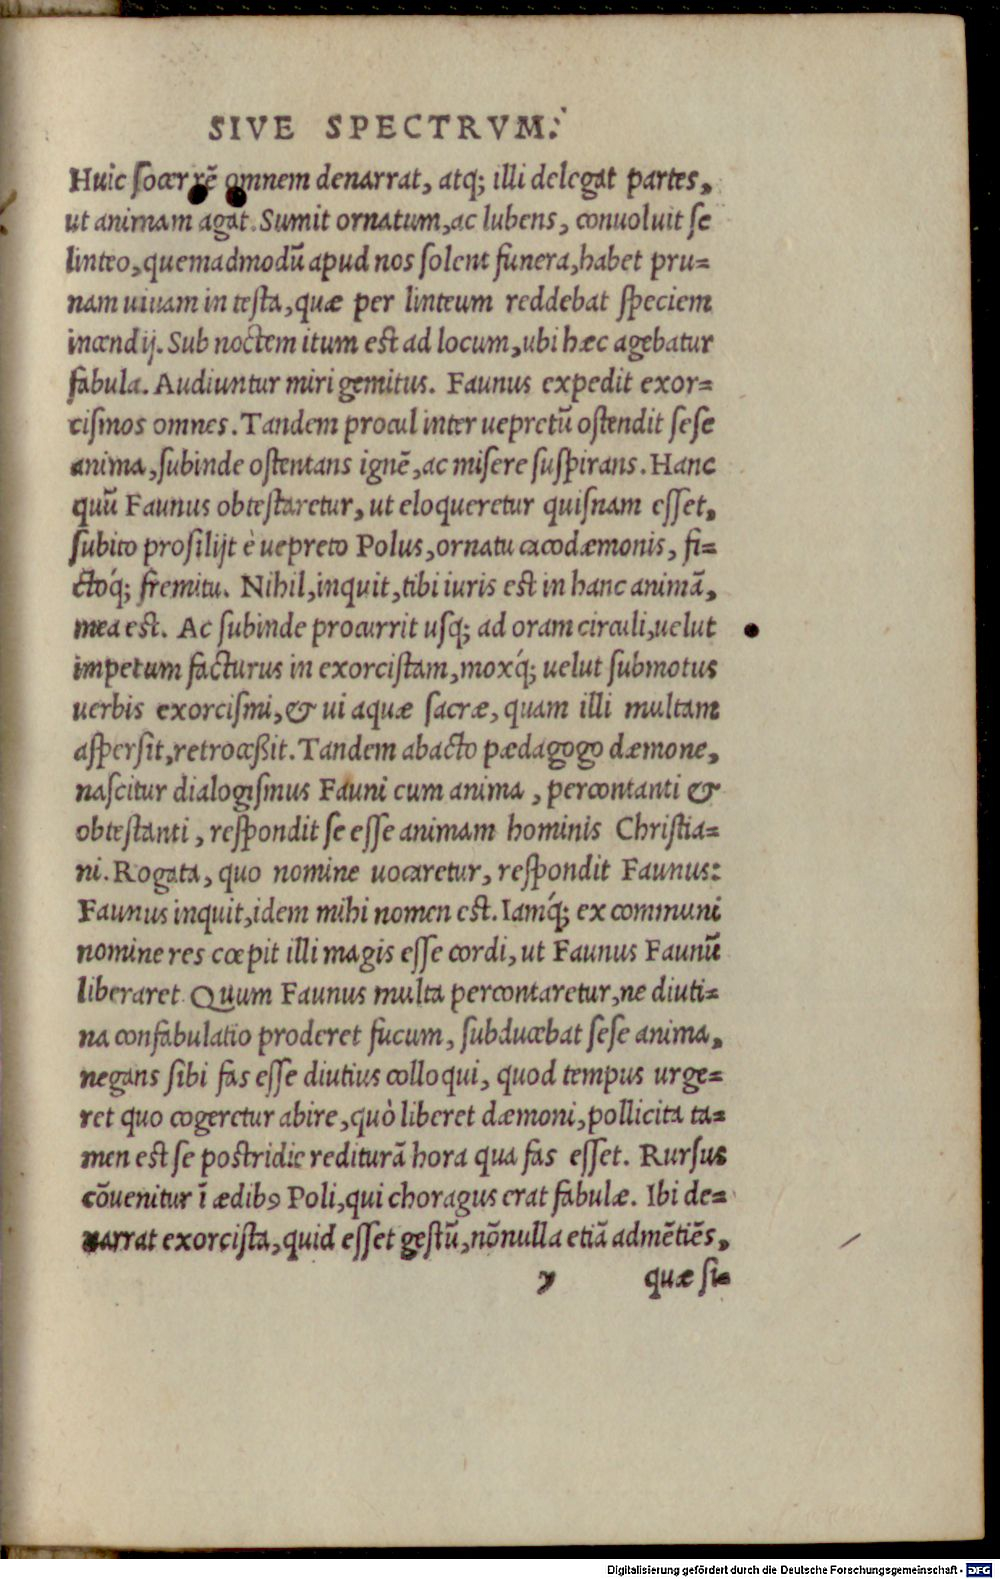 SIVE SPECTRVM.
Huic socer rẽ omnem denarrat, atq; illi delegat partes,
ut animam agat. Sumit ornatum, ac lubens, conuoluit se
linteo, quemadmodũ apud nos solent funera, habet pru=
nam uiuam in testa, quæ per linteum reddebat speciem
incendij. Sub noctem itum est ad locum, ubi hæc agebatur
fabula. Audiuntur miri gemitus. Faunus expedit exor=
cismos omnes. Tandem procul inter uepretũ ostendit sese
anima, subinde ostentans ignẽ, ac misere suspirans. Hanc
quũ Faunus obtestaretur, ut eloqueretur quisnam esset,
subito prosilijt è uepreto Polus, ornatu cacodæmonis, fi=
ctoq́; fremitu. Nihil, inquit, tibi iuris est in hanc animã,
mea est. Ac subinde procurrit usq; ad oram circuli, uelut
impetum facturus in exorcistam, moxq́; uelut submotus
uerbis exorcismi, & ui aquæ sacræ, quam illi multam
aspersit, retroceßit. Tandem abacto pædagogo dæmone,
nascitur dialogismus Fauni cum anima, percontanti &
obtestanti, respondit se esse animam hominis Christia=
ni. Rogata, quo nomine uocaretur, respondit Faunus:
Faunus inquit, idem mihi nomen est. Iamq́; ex communi
nomine res cœpit illi magis esse cordi, ut Faunus Faunũ
liberaret. Quum Faunus multa percontaretur, ne diuti=
na confabulatio proderet fucum, subducebat sese anima,
negans sibi fas esse diutius colloqui, quod tempus urge=
ret quo cogeretur abire, quò liberet dæmoni, pollicita ta=
men est se postridie rediturã hora qua fas esset. Rursus
cõuenitur ĩ ædibꝰ Poli, qui choragus erat fabulæ. Ibi de=
narrat exorcista, quid esset gestũ, nõnulla etiã admẽtiẽs,
y quæ si=
Digitalisierung gefördert durch die Deutsche Forschungsgemeinschaft - DFG